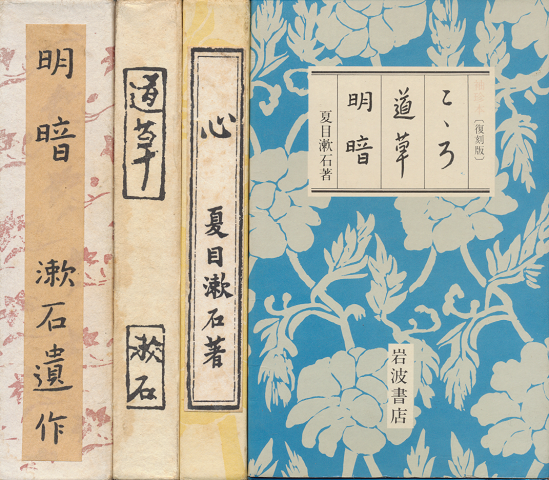 明暗 漱石遺作
道草 漱石
心 夏目漱石著
［復刻版］
こゝろ
道草
明暗
夏目漱石著
岩波書店